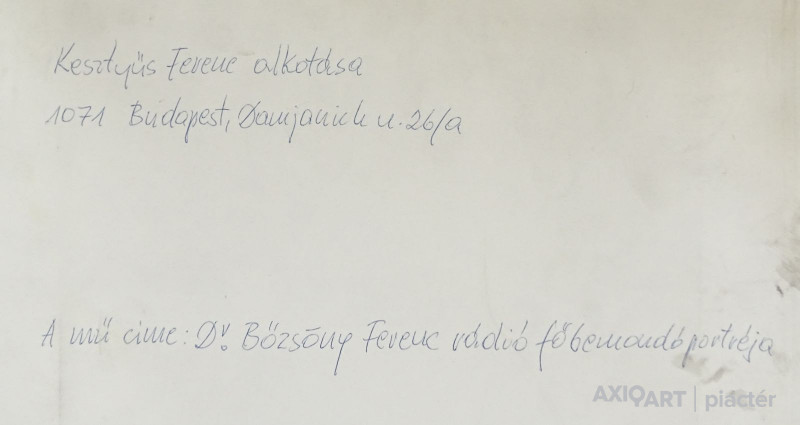 Kesztyűs Ferenc alkotása
1071 Budapest, Damjanich u. 26/a
A mű címe: Dr. Bőzsöny Ferenc rádió főbemondó portréja
AXIOART | piactér